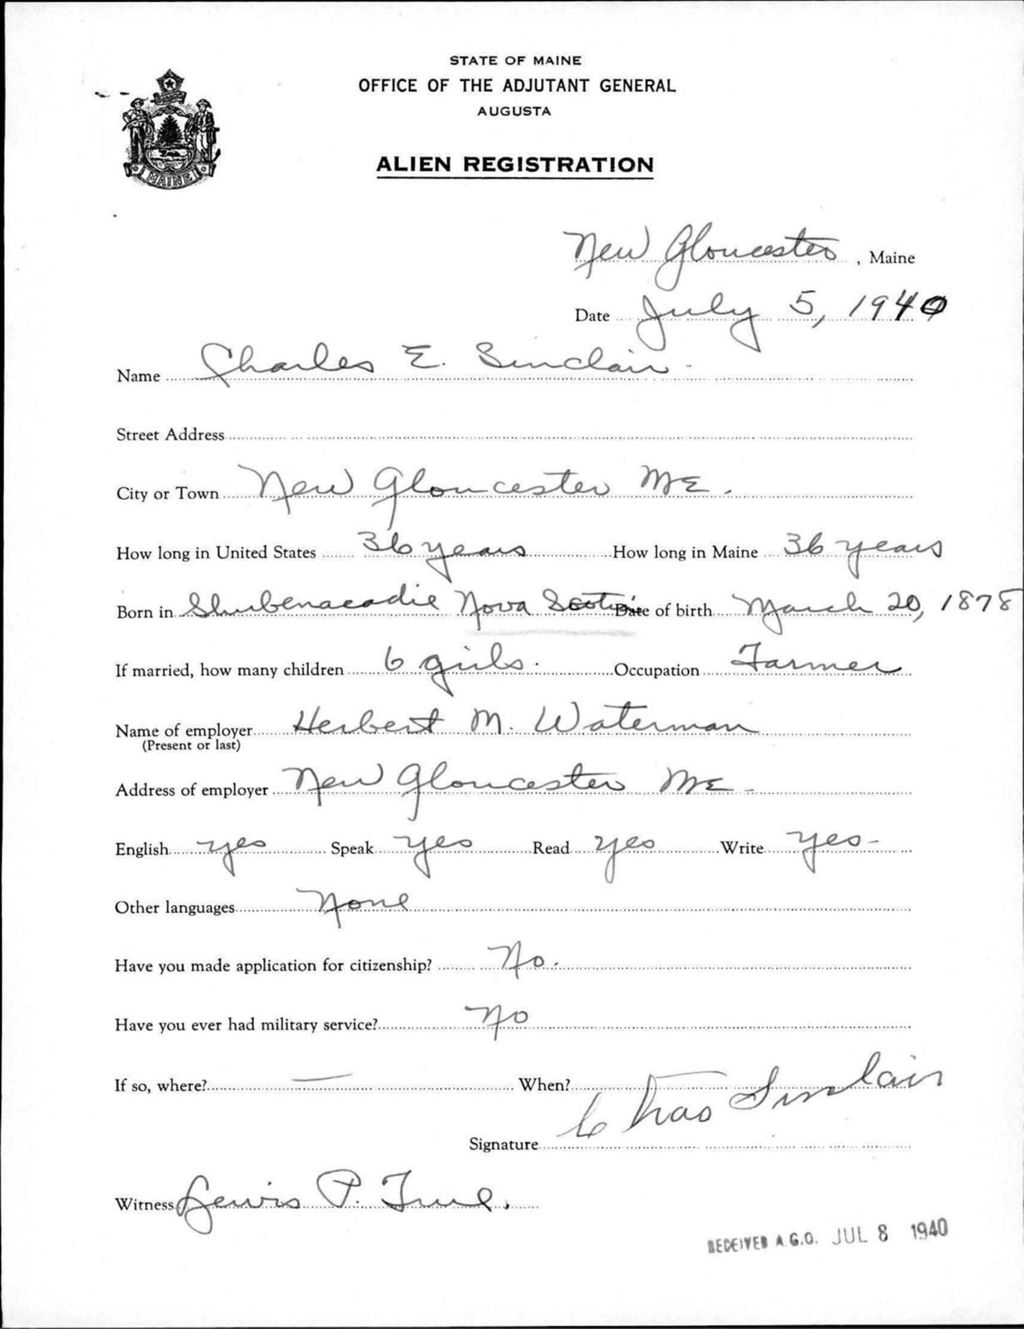 STATE OF MAINE
OFFICE OF THE ADJUTANT GENERAL
AUGUSTA
ALIEN REGISTRATION
MAINE
New Gloucester, Maine
Date July 5, 1940
Name Charles E. Sinclair
Street Address
City or Town New Gloucester ME.
How long in United States 36 years How long in Maine 36 years
Born in Shubenacadie Nova Scotia Date of birth March 20, 1878
If married, how many children 6 girls. Occupation Farmer
Name of employer Herbert M. Waterman
(Present or last)
Address of employer New Gloucester ME
English yes Speak yes Read yes Write yes
Other languages None
Have you made application for citizenship? No.
Have you ever had military service? No
If so, where? — When? —
Signature Chas Sinclair
Witness Lewis P. True.
RECEIVED A.G.O. JUL 8 1940